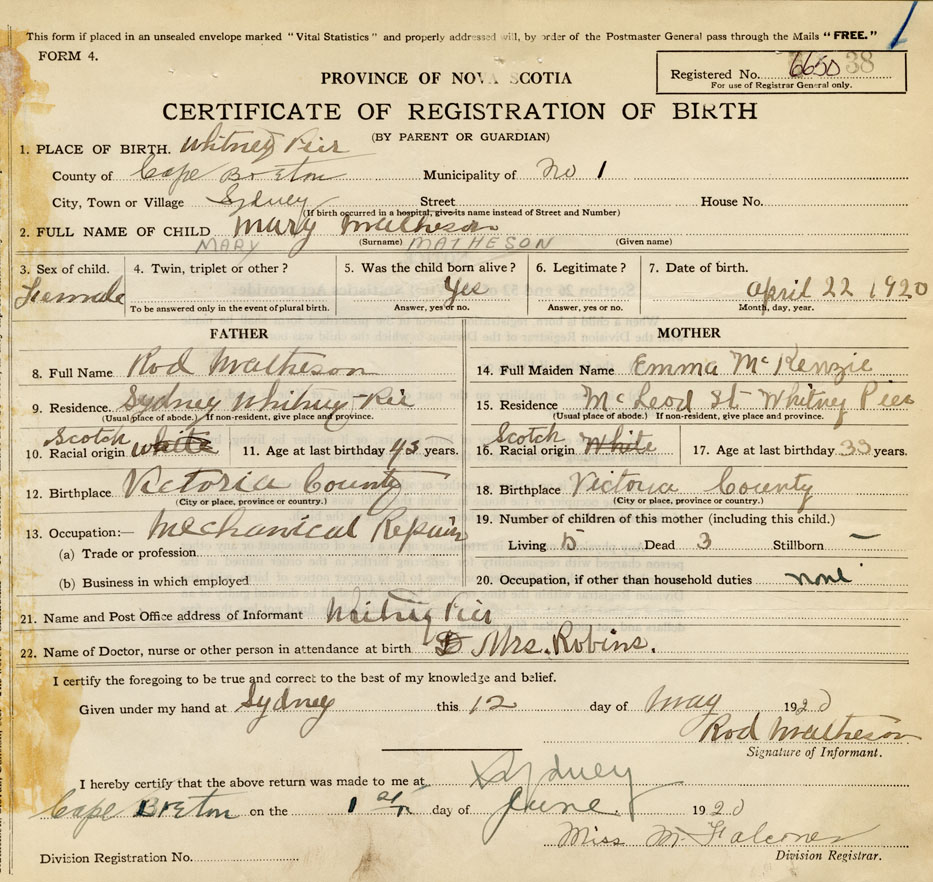 This form if placed in an unsealed envelope marked "Vital Statistics" and properly addressed will, by order of the Postmaster General pass through the Mails "FREE."
FORM 4.
Registered No. 6650 38
For use of Registrar General only.
PROVINCE OF NOVA SCOTIA
CERTIFICATE OF REGISTRATION OF BIRTH
(BY PARENT OR GUARDIAN)
1. PLACE OF BIRTH. Whitney Pier
County of Cape Breton Municipality of No 1
City, Town or Village Sydney Street House No.
(If birth occurred in a hospital, give its name instead of Street and Number)
2. FULL NAME OF CHILD Mary Matheson
MARY (Surname) MATHESON (Given name)
3. Sex of child. 4. Twin, triplet or other? 5. Was the child born alive? 6. Legitimate? 7. Date of birth.
Female Yes April 22 1920
To be answered only in the event of plural birth. Answer, yes or no. Answer, yes or no. Month, day, year.
FATHER MOTHER
8. Full Name Rod Matheson 14. Full Maiden Name Emma McKenzie
9. Residence. Sydney Whitney Pie 15. Residence McLeod St Whitney Pier
(Usual place of abode.) If non-resident, give place and province. (Usual place of abode.) If non-resident, give place and province.
Scotch Scotch
10. Racial origin white 11. Age at last birthday 43 years. 16. Racial origin White 17. Age at last birthday 33 years.
12. Birthplace Victoria County 18. Birthplace Victoria County
(City or place, province or country.) (City or place, province or country.)
13. Occupation:— Mechanical Repair 19. Number of children of this mother (including this child.)
(a) Trade or profession. Living 5 Dead 3 Stillborn —
(b) Business in which employed 20. Occupation, if other than household duties none
21. Name and Post Office address of Informant Whitney Pier
22. Name of Doctor, nurse or other person in attendance at birth Mrs. Robins.
I certify the foregoing to be true and correct to the best of my knowledge and belief.
Given under my hand at Sydney this 12 day of May 1920
Rod Matheson
Signature of Informant.
I hereby certify that the above return was made to me at Sydney
Cape Breton on the 1 day of June 1920
Miss M. Falconer
Division Registration No. Division Registrar.